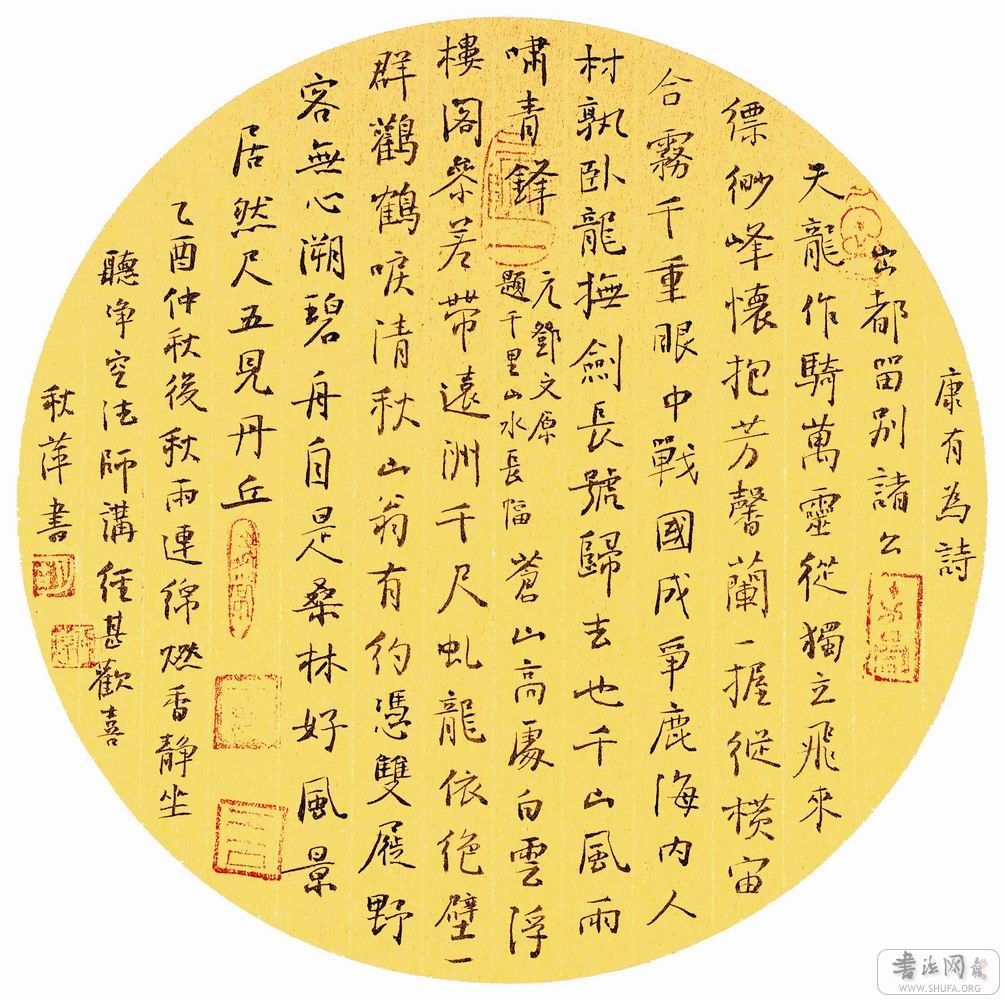 康有為詩
出都留别諸公
天龍作騎萬靈從獨立飛來
縹緲峰懷抱芳馨蘭一握縱橫宙
合霧千重眼中戰國成爭鹿海内人
材孰卧龍撫劍長號歸去也千山風雨
嘯青鋒
元鄧文原
題千里山水長幅
蒼山高處白雲浮
樓閣參差帶遠洲千尺虬龍依絶壁一
群鸛鶴唳清秋山翁有約憑雙屐野
客無心溯碧舟自是桑林好風景
居然尺五見丹丘
乙酉仲秋後秋雨連綿燃香靜坐
聽净空法師講經甚歡喜
秋萍書
书法网
WWW.SHUFA.ORG